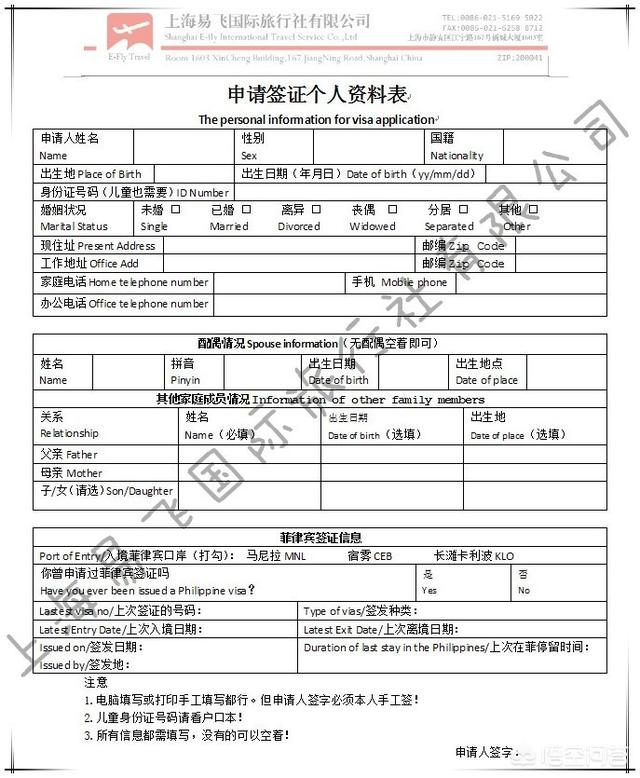 上海易飞国际旅行社有限公司
Shanghai E-fly International Travel Service Co.,Ltd
TEL:0086-021-5169 5022
FAX:0086-021-6258 8712
上海市静安区江宁路167号新城大厦1603室
E-Fly Travel
Room 1603 XinCheng Building,167 JiangNing Road,Shanghai China
ZIP:200041
申请签证个人资料表
The personal information for visa application
申请人姓名 性别 国籍
Name Sex Nationality
出生地 Place of Birth 出生日期（年月日）Date of birth (yy/mm/dd)
身份证号码（儿童也需要）ID Number
婚姻状况 未婚 □ 已婚 □ 离异 □ 丧偶 □ 分居 □ 其他 □
Marital Status Single Married Divorced Widowed Separated Other
现住址 Present Address 邮编 Zip Code
工作地址 Office Add 邮编 Zip Code
家庭电话 Home telephone number 手机 Mobile phone
办公电话 Office telephone number
配偶情况 Spouse information（无配偶空着即可）
姓名 拼音 出生日期 出生地点
Name Pinyin Date of birth Date of place
其他家庭成员情况 Information of other family members
关系 姓名 出生日期 出生地
Relationship Name（必填） Date of birth（选填） Date of place（选填）
父亲 Father
母亲 Mother
子/女（请选）Son/Daughter
菲律宾签证信息
Port of Entry/入境菲律宾口岸（打勾）： 马尼拉 MNL 宿雾 CEB 长滩卡利波 KLO
你曾申请过菲律宾签证吗 是 否
Have you ever been issued a Philippine visa？ Yes No
Lastest visa no/上次签证的号码： Type of vias/签发种类：
Latest Entry Date/上次入境日期： Latest Exit Date/上次离境日期：
Issued on/签发日期： Duration of last stay in the Philippines/上次在菲停留时间：
Issued by/签发地：
注意
1. 电脑填写或打印手工填写都行。但申请人签字必须本人手工签！
2. 儿童身份证号码请看户口本！
3. 所有信息都需填写，没有的可以空着！
申请人签字：
上海易飞国际旅行社有限公司
悟空问答